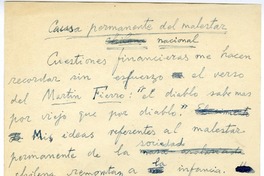 Causa permanente del malestar
nacional
Cuestiones financieras me hacen
recordar sin esfuerzo el verso
del Martín Fierro: "el diablo sabe mas
por viejo que por diablo."
Mis ideas referentes al malestar
permanente de la sociedad
chilena remontan a la infancia.